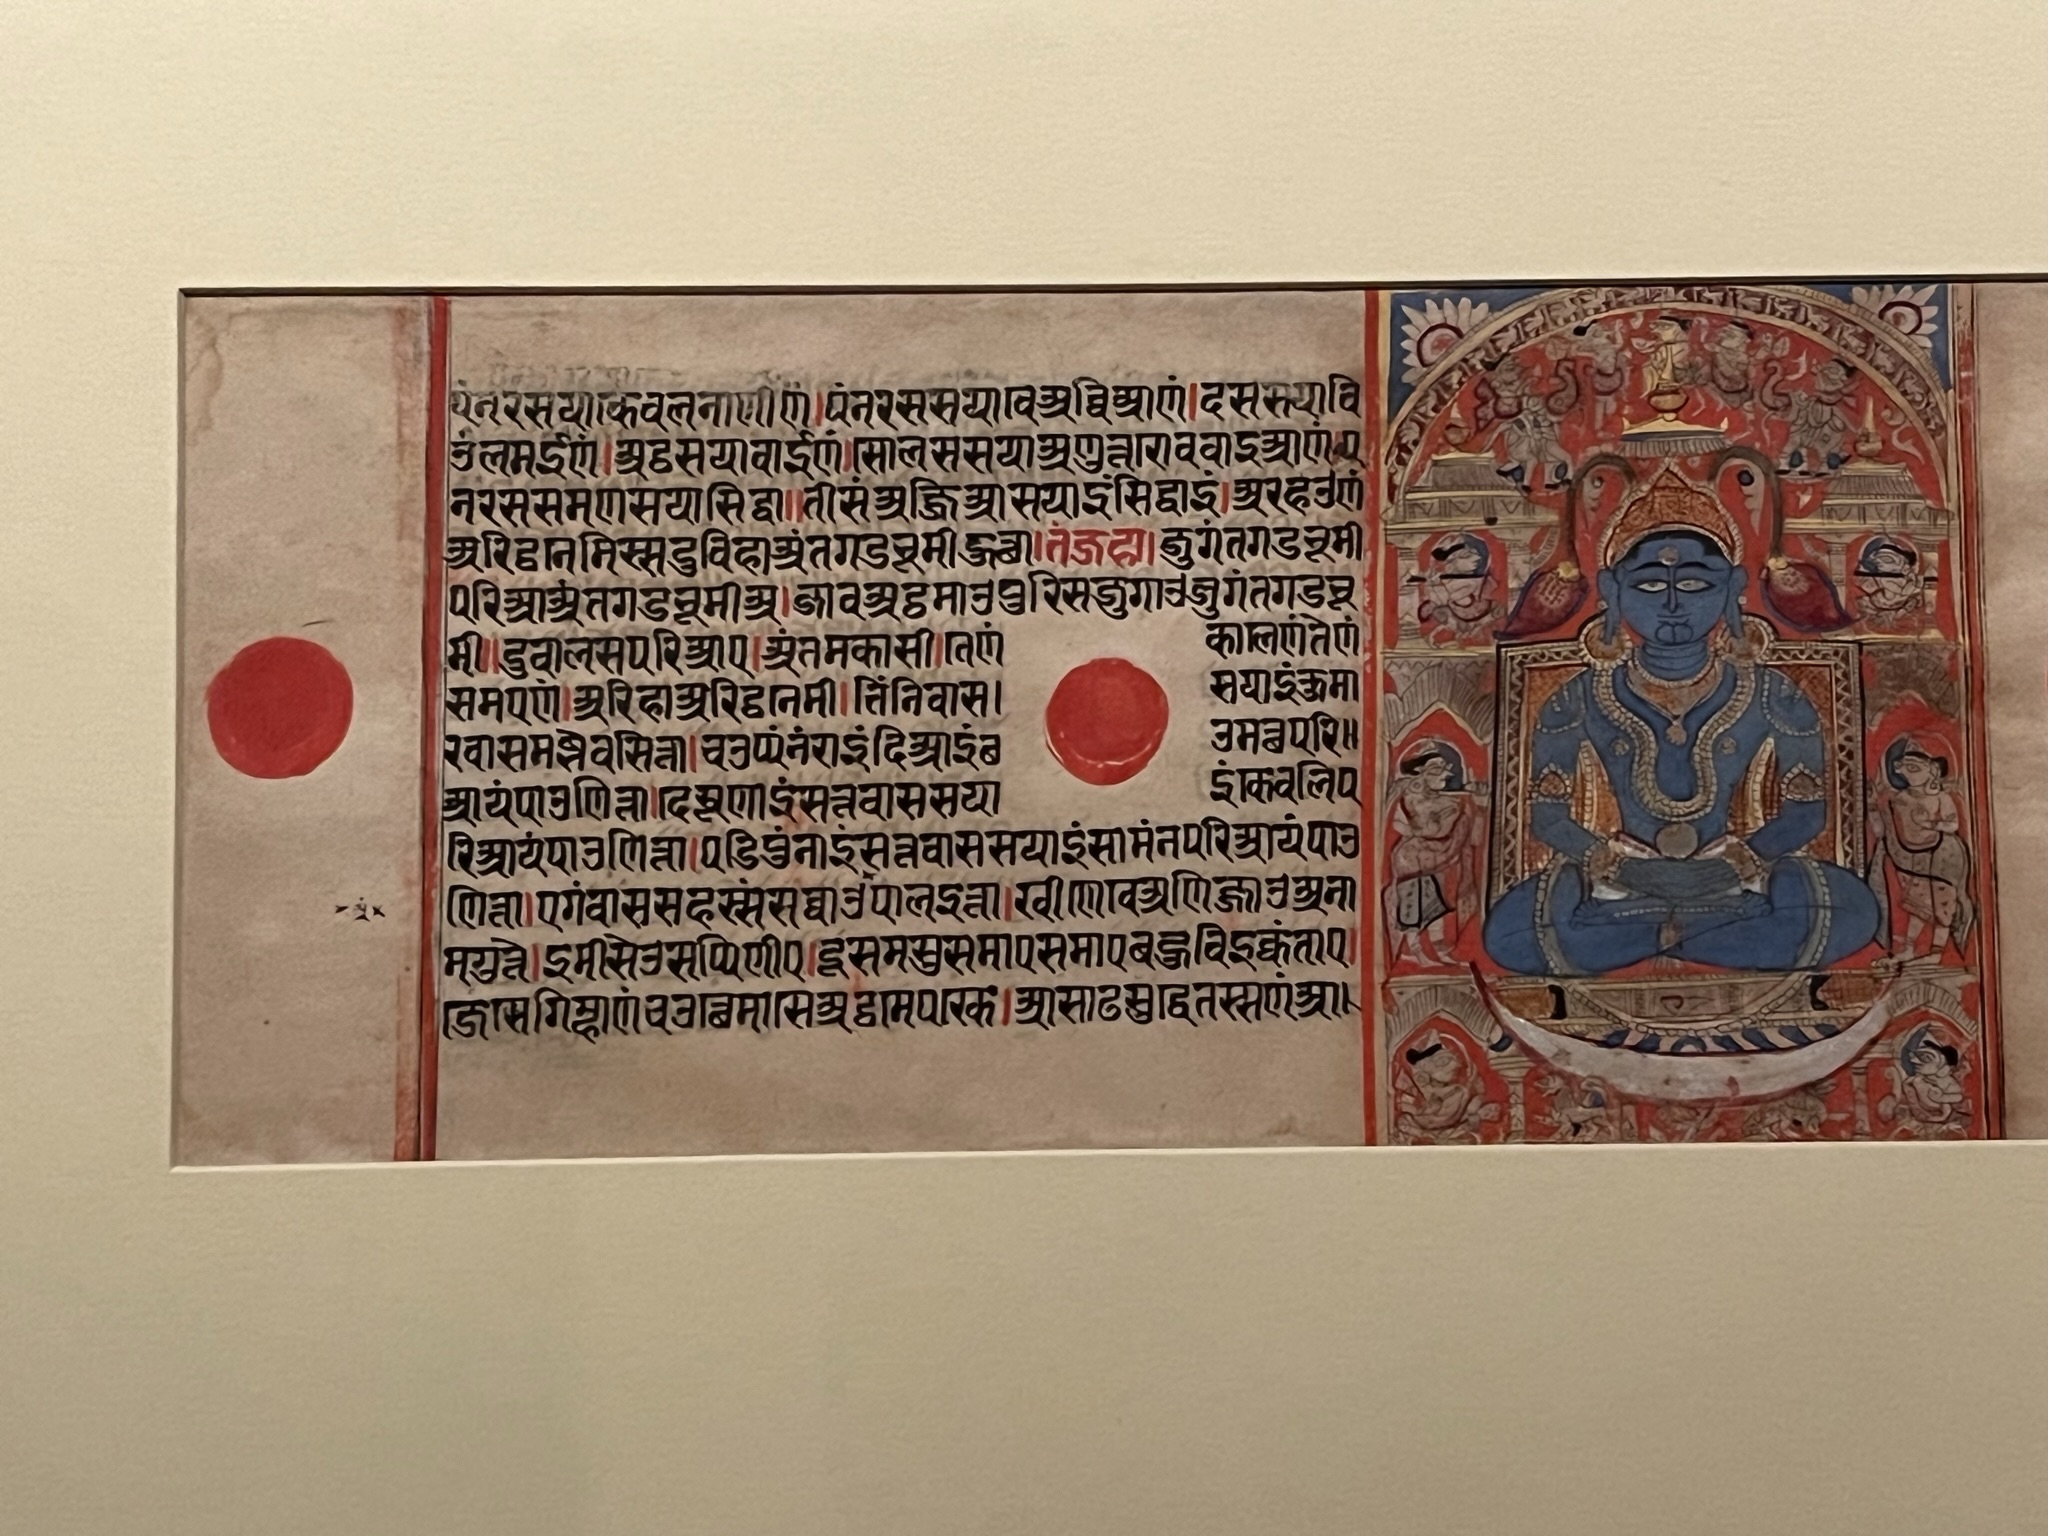 पंनरससयाकेवलनाणीणं।पंनरससयावेअव्विआणं।दससयावि
उलमईणं।अट्ठसयावाईणं।सोलससयाअणुत्तरोववाइआणं।प
नरससमणसयासिद्धा।।तीसंअज्जिआसयाइंसिद्धाइं।अरहउणं
अरिट्ठनेमिस्सदुविहाअंतगडभूमीहुत्था।तंजहा।जुगंतगडभूमी
परिआअंतगडभूमीअ।जावअट्ठमाउपुरिसजुगाउजुगंतगडभू
मी।।दुवालसपरिआए।अंतमकासी।तेणं कालेणंतेणं
समएणं।अरिहाअरिट्ठनेमी।तिंनिवास। सयाइंकुमा
रवासमज्झेवसित्ता।चउप्पंनंराइंदिआइंछ उमछपरि॥
आयंपाउणित्ता।देसूणाइंसत्तवाससया इंकेवलिप
रिआयंपाउणित्ता।पडिपुंनाइंसत्तवाससयाइंसामंनपरिआयंपाउ
णित्ता।एगंवाससहस्संसव्वाउंपालइत्ता।खीणेवेअणिज्जाउअना
मगुत्ते।इमीसेउसप्पिणीए।दूसमसुसमाएसमाएबहुविइक्कंताए।
जेसेगिम्हाणंचउत्थेमासेअट्ठमेपरके।आसाढसुद्धेतस्सणंआ।